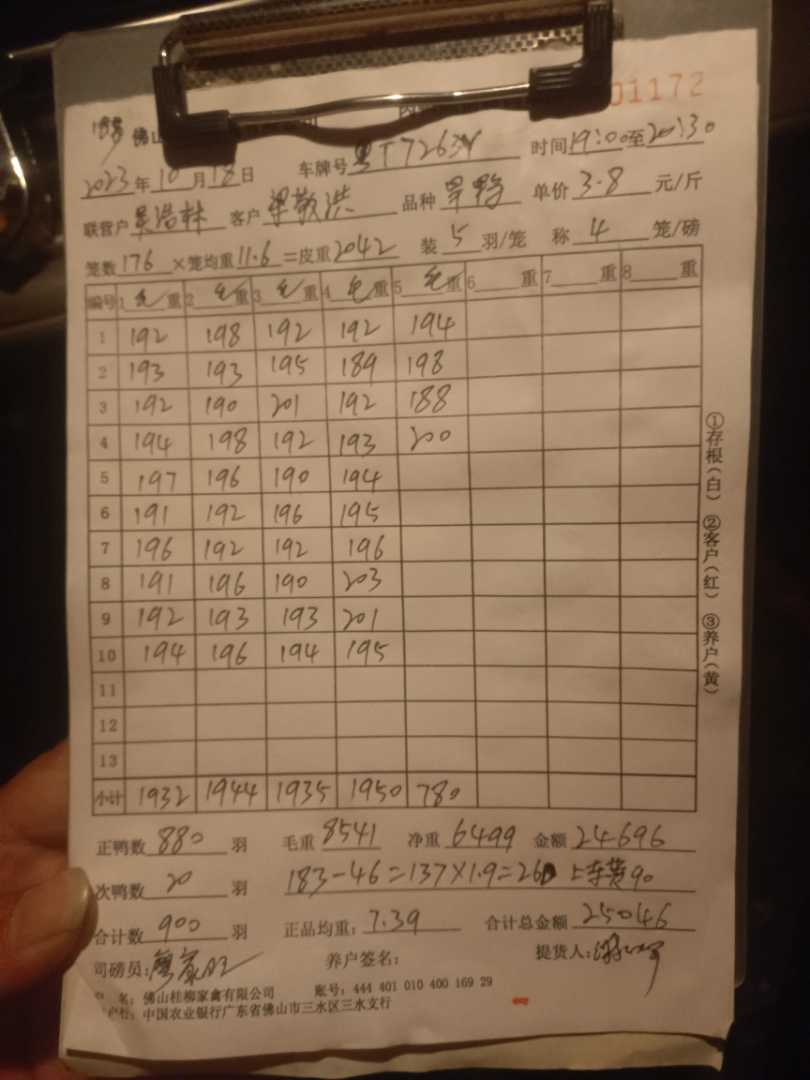 佛山
01172
2023年10月18日 车牌号 T7263 时间19:00至20:30
联营户 吴浩林 客户 梁敬洪 品种 旱鸭 单价 3.8 元/斤
笼数 176 ×笼均重 11.6 =皮重 2042 装 5 羽/笼 称 4 笼/磅
编号 1 毛 重 2 毛 重 3 毛 重 4 毛 重 5 毛 重 6 重 7 重 8 重
1 192 198 192 192 194
2 193 193 195 189 198
3 192 190 201 192 188
4 194 198 192 193 200
5 197 196 190 194
6 191 192 196 195
7 196 192 192 196
8 191 196 190 203
9 192 193 193 201
10 194 196 194 195
11
12
13
小计 1932 1944 1935 1950 780
正鸭数 880 羽 毛重 8541 净重 6499 金额 24696
次鸭数 20 羽 183-46=137×1.9=260 上车费90
合计数 900 羽 正品均重: 7.39 合计总金额 25046
司磅员: 养户签名: 提货人:
户 名: 佛山桂柳家禽有限公司 账号: 444 401 010 400 169 29
户行: 中国农业银行广东省佛山市三水区三水支行
①存根(白) ②客户(红) ③养户(黄)